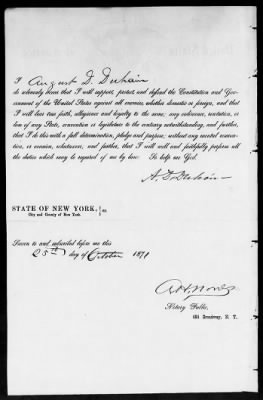 I August D. Duhain
do solemnly swear that I will support, protect and defend the Constitution and Gov-
ernment of the United States against all enemies, whether domestic or foreign, and that
I will bear true faith, allegiance and loyalty to the same, any ordinance, resolution, or
law of any State, convention or legislature to the contrary notwithstanding, and further,
that I do this with a full determination, pledge and purpose, without any mental reserva-
tion, or evasion, whatsoever, and further, that I will well and faithfully perform all
the duties which may be required of me by law. So help me God.
A. D. Duhain
STATE OF NEW YORK, } ss.
City and County of New York.
Sworn to and subscribed before me this
25th day of October 1871
Notary Public,
Broadway, N. Y.